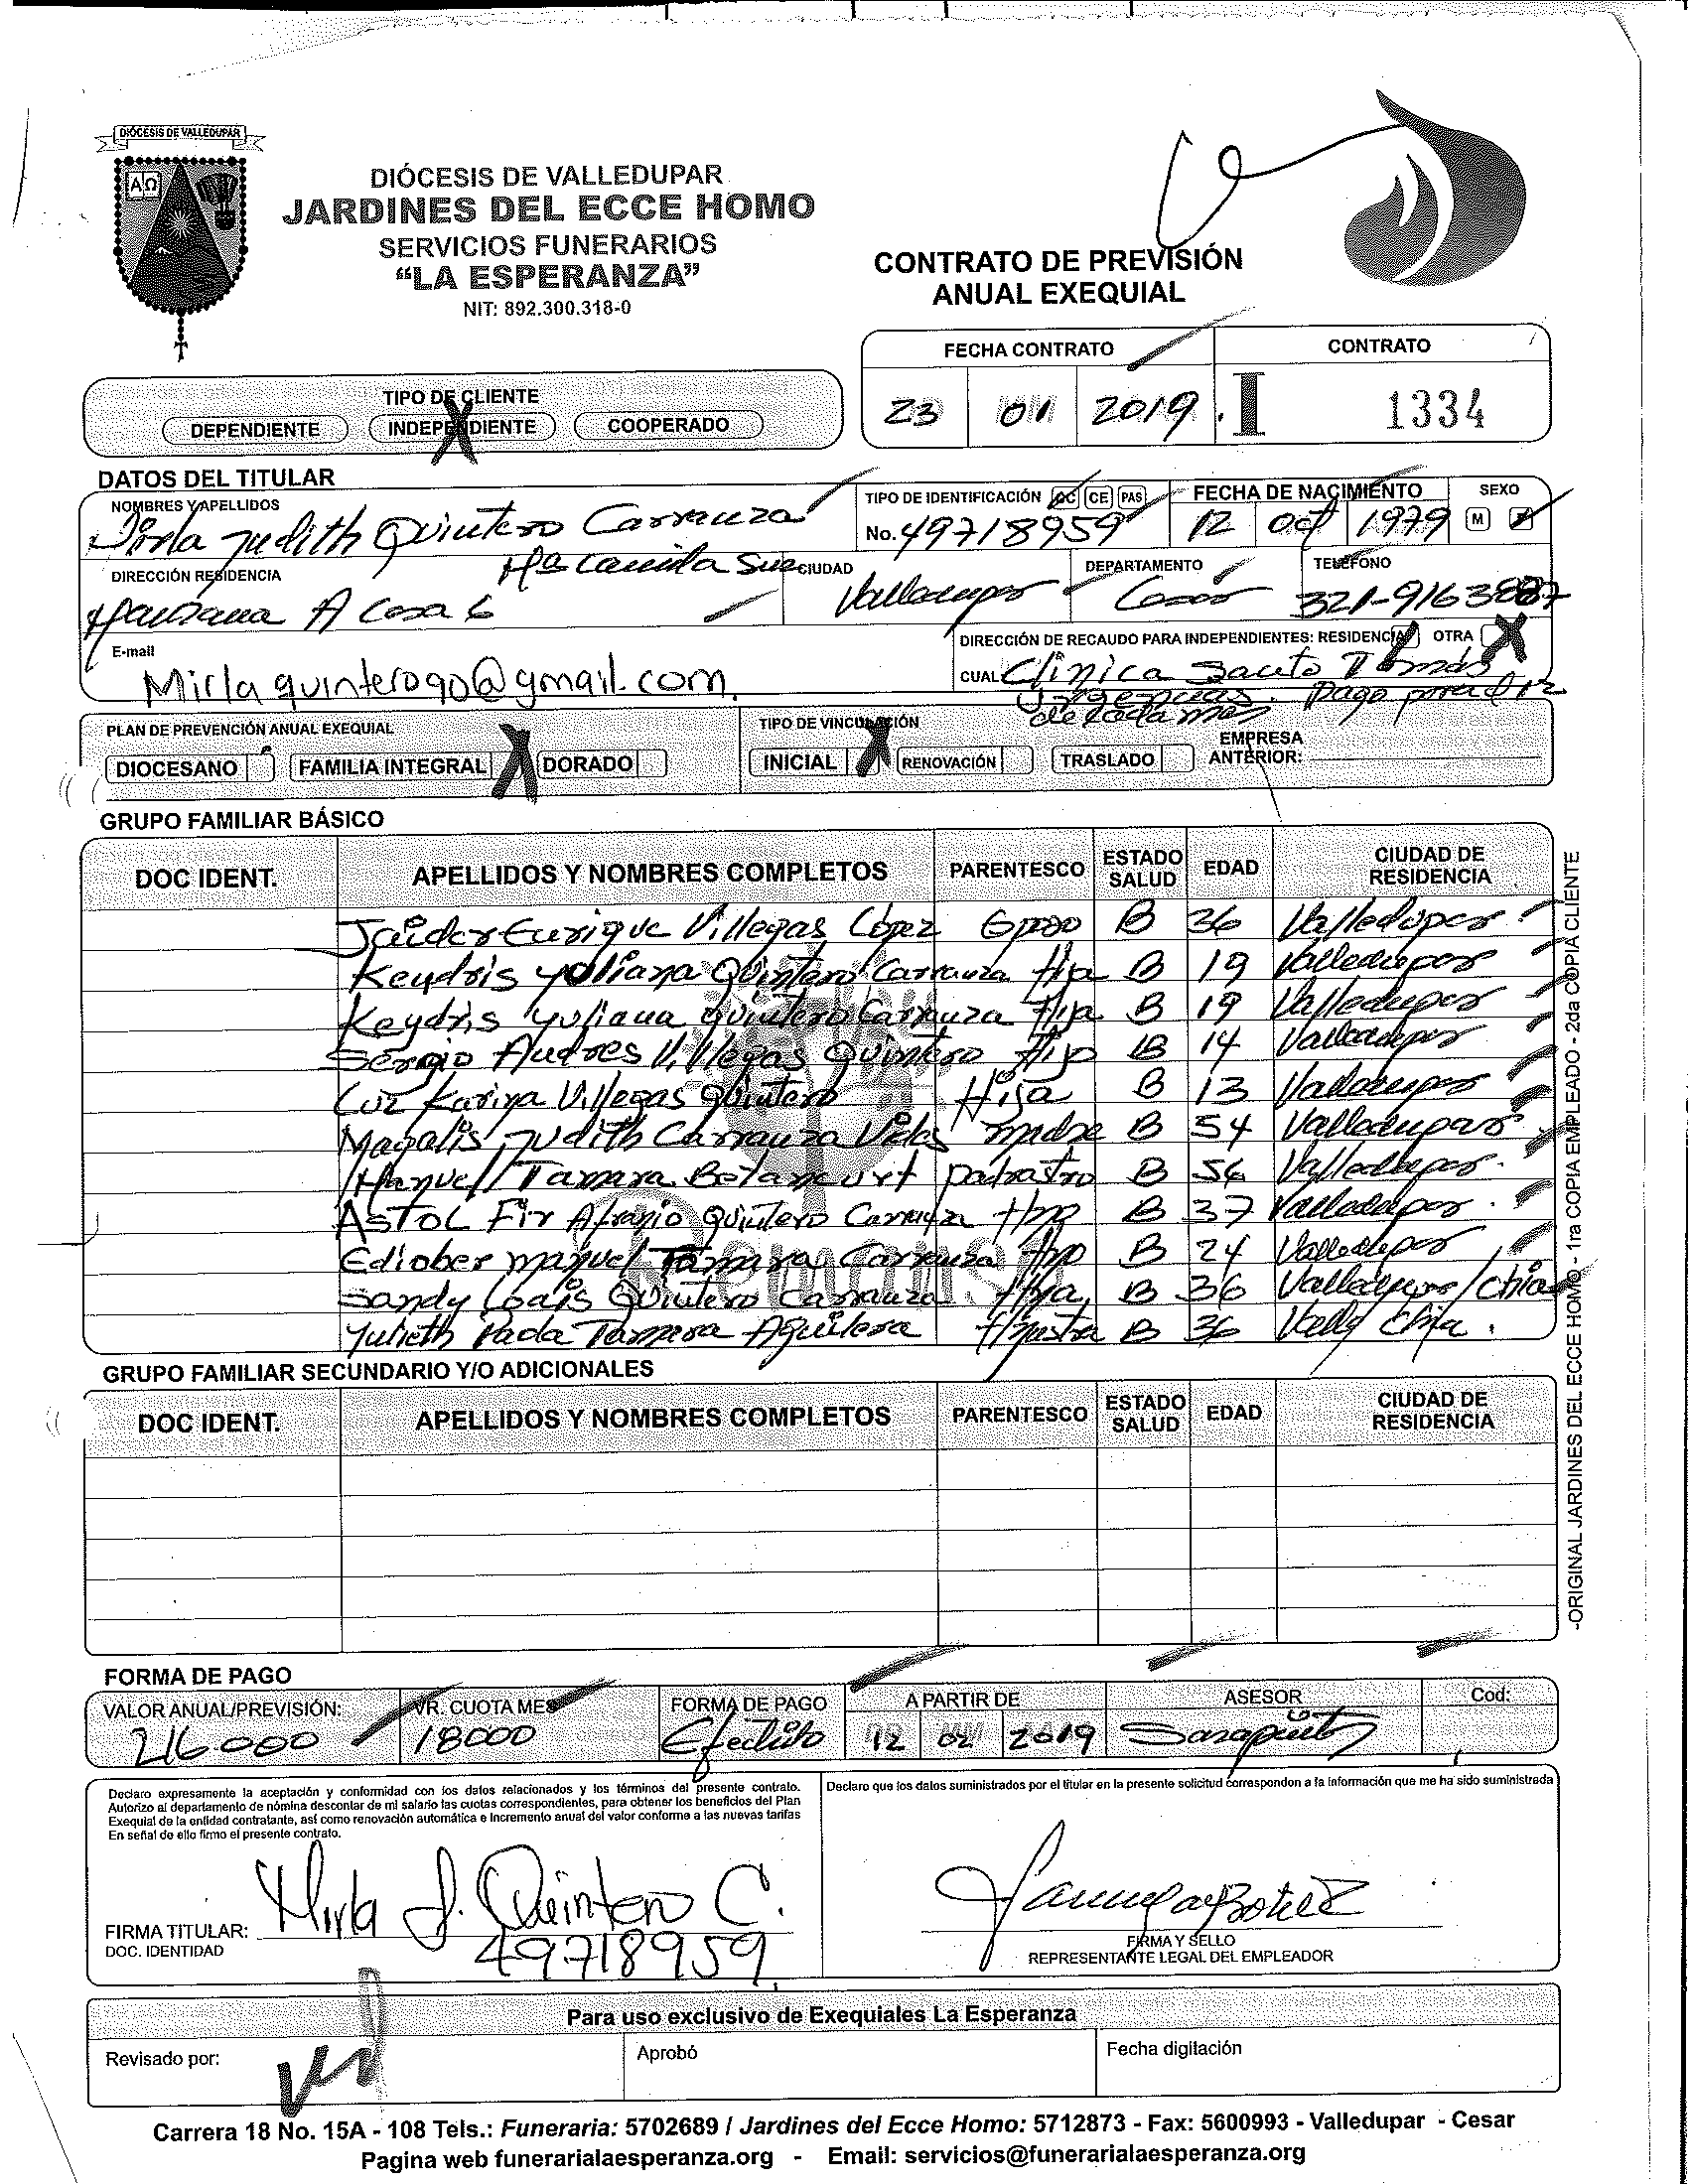 DIÓCESIS DE VALLEDUPAR
AΩ
DIÓCESIS DE VALLEDUPAR
JARDINES DEL ECCE HOMO
SERVICIOS FUNERARIOS
“LA ESPERANZA”
NIT: 892.300.318-0
CONTRATO DE PREVISIÓN
ANUAL EXEQUIAL
FECHA CONTRATO CONTRATO
23 01 2019 I 1334
TIPO DE CLIENTE
DEPENDIENTE INDEPENDIENTE X COOPERADO
DATOS DEL TITULAR
NOMBRES Y APELLIDOS
Mirla Judith Quintero Carranza
TIPO DE IDENTIFICACIÓN CC CE PAS
No. 49718959
FECHA DE NACIMIENTO
12 oct 1979
SEXO
M F
DIRECCIÓN RESIDENCIA
Mª Camila Sur
Manzana A Casa 6
CIUDAD
Valledupar
DEPARTAMENTO
Cesar
TELÉFONO
321-9163887
E-mail
Mirlaquintero90@gmail.com.
DIRECCIÓN DE RECAUDO PARA INDEPENDIENTES: RESIDENCIA OTRA X
CUAL Clinica Santo Tomás
Urgencias. Pago para el 12
de cada mes
PLAN DE PREVENCIÓN ANUAL EXEQUIAL
DIOCESANO FAMILIA INTEGRAL X DORADO
TIPO DE VINCULACIÓN
INICIAL X RENOVACIÓN TRASLADO EMPRESA ANTERIOR:
GRUPO FAMILIAR BÁSICO
DOC IDENT. APELLIDOS Y NOMBRES COMPLETOS PARENTESCO ESTADO SALUD EDAD CIUDAD DE RESIDENCIA
Jaider Enrique Villegas López Esposo B 36 Valledupar
Keydris Yuliana Quintero Carranza Hija B 19 Valledupar
Keydris Yuliana Quintero Carranza Hija B 19 Valledupar
Sergio Andres Villegas Quintero Hijo B 14 Valledupar
Luz Karina Villegas Quintero Hija B 13 Valledupar
Magalis Judith Carranza madre B 54 Valledupar
Manuel Tamara Betancurt padrastro B 56 Valledupar.
Astol Fir Afranio Quintero Carranza Hno B 37 Valledupar.
Ediober manuel Tamara Carranza Hno B 24 Valledupar
Sandy Quintero Carranza Hna B 36 Valledupar/Chia
Yulieth Tamara Aguilera B 36 Chia.
GRUPO FAMILIAR SECUNDARIO Y/O ADICIONALES
DOC IDENT. APELLIDOS Y NOMBRES COMPLETOS PARENTESCO ESTADO SALUD EDAD CIUDAD DE RESIDENCIA
-ORIGINAL JARDINES DEL ECCE HOMO - 1ra COPIA EMPLEADO - 2da COPIA CLIENTE
FORMA DE PAGO
VALOR ANUAL/PREVISIÓN: VR. CUOTA MES FORMA DE PAGO A PARTIR DE ASESOR Cod:
216000 18000 Efectivo 12 02 2019
Declaro expresamente la aceptación y conformidad con los datos relacionados y los términos del presente contrato.
Autorizo al departamento de nómina descontar de mi salario las cuotas correspondientes, para obtener los beneficios del Plan
Exequial de la entidad contratante, así como renovación automática e incremento anual del valor conforme a las nuevas tarifas
En señal de ello firmo el presente contrato.
Declaro que los datos suministrados por el titular en la presente solicitud correspondon a la información que me ha sido suministrada
Mirla J. Quintero C.
FIRMA TITULAR:
DOC. IDENTIDAD
49718959
FIRMA Y SELLO
REPRESENTANTE LEGAL DEL EMPLEADOR
Para uso exclusivo de Exequiales La Esperanza
Revisado por: Aprobó Fecha digitación
Carrera 18 No. 15A - 108 Tels.: Funeraria: 5702689 / Jardines del Ecce Homo: 5712873 - Fax: 5600993 - Valledupar - Cesar
Pagina web funerarialaesperanza.org - Email: servicios@funerarialaesperanza.org